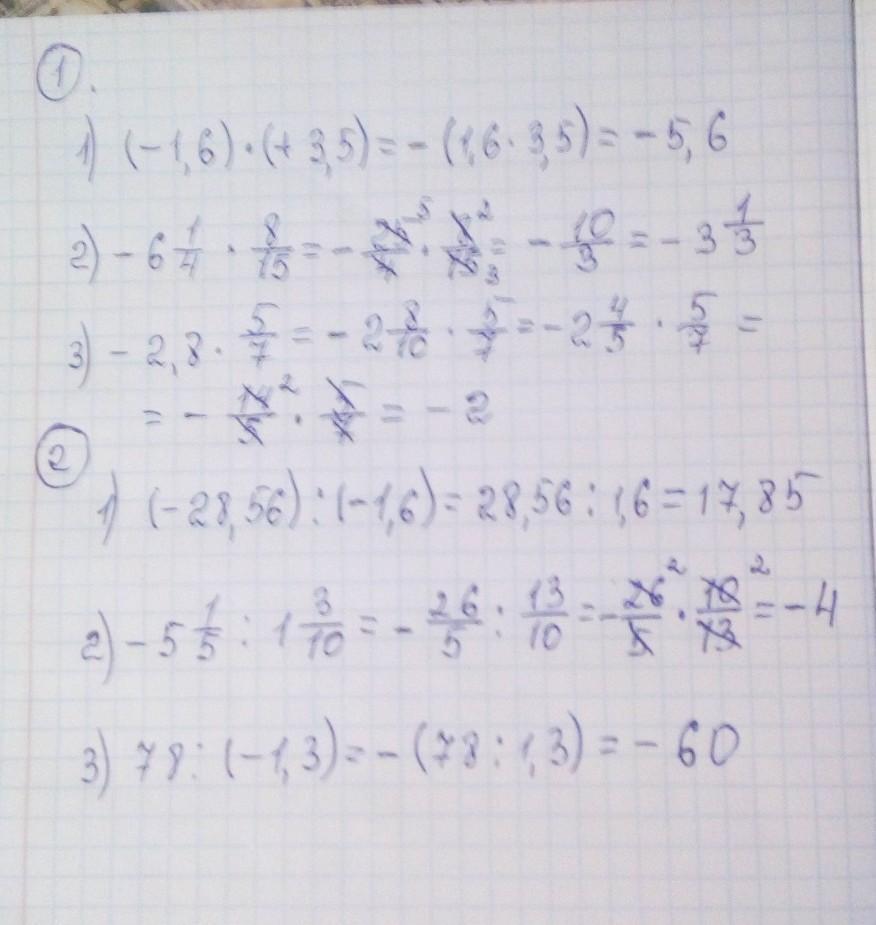 1.
1) (-1,6)·(+3,5)=-(1,6·3,5)=-5,6
2) -6 1/4 · 8/15 = - 25⁵/4 · 8²/15₃ = - 10/3 = -3 1/3
3) -2,8 · 5/7 = -2 8/10 · 5/7 = -2 4/5 · 5/7 =
= - 14²/5 · 5/7 = -2
2
1) (-28,56):(-1,6)=28,56:1,6=17,85
2) -5 1/5 : 1 3/10 = - 26/5 : 13/10 = - 26²/5 · 10²/13 = -4
3) 78:(-1,3)=-(78:1,3)=-60